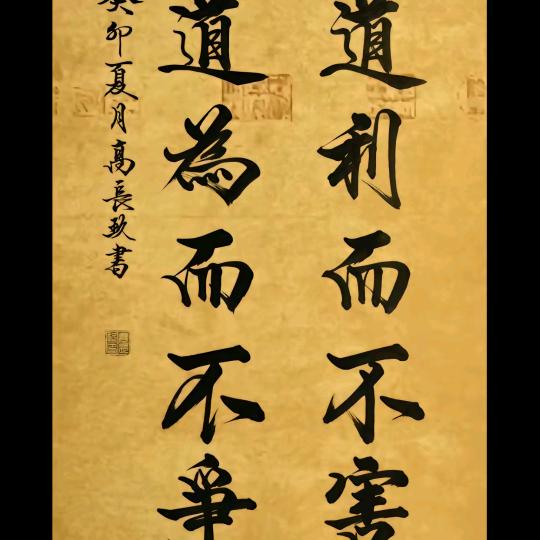 道利而不害
道為而不爭
癸卯夏月高長玖書